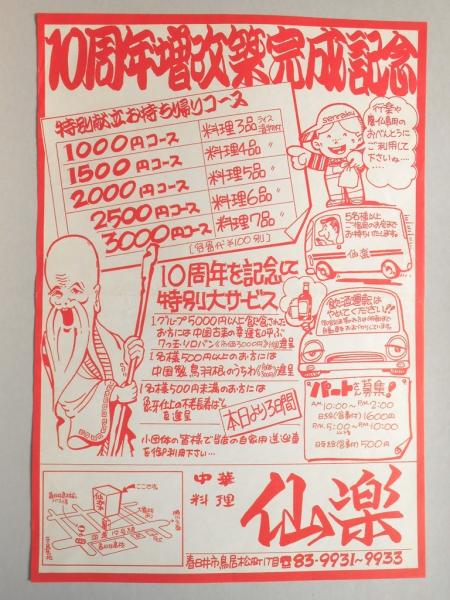 10周年増改築完成記念
特別献立お持ち帰りコース
1000円コース 料理3品 ライス 漬物付
1500円コース 料理4品 〃
2000円コース 料理5品 〃
2500円コース 料理6品 〃
3000円コース 料理7品 〃
[容器代¥100別]
senraku
行楽や
おべんとうに
ご利用して
下さいね…
5名様以上
仙楽
10周年を記念して
特別大サービス
1グループ5000円以上飲食された
お方には中国古来の幸運を呼ぶ
1名様500円以上のお方には
進呈
1名様500円未満のお方には
進呈
本日より3日間
小団体の皆様で当店の自家用送迎車
を御利用下さい…
飲酒運転は
やめてください!!
パートさん募集!
AM10:00~PM2:00
日給(食事付)1600円
PM5:00~PM10:00
時給(食事付)500円
中華
料理
仙楽
仙楽
ここです
国道19号線
春日井市鳥居松町1丁目☎83-9931~9933